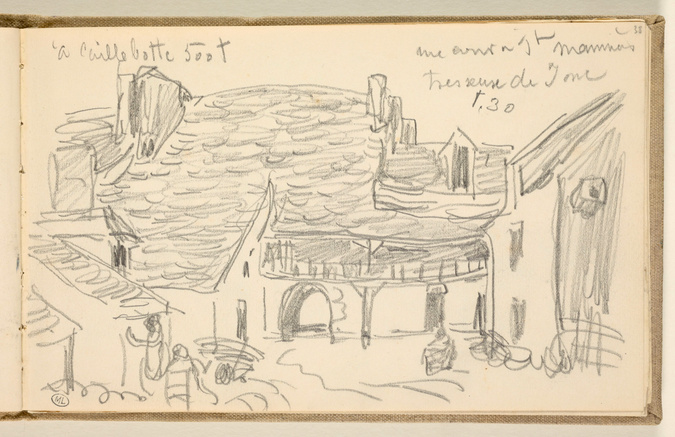 à Caillebotte 500 f
une cour à St Mammès
tresseuse de Jonc
f. 30
38
ML